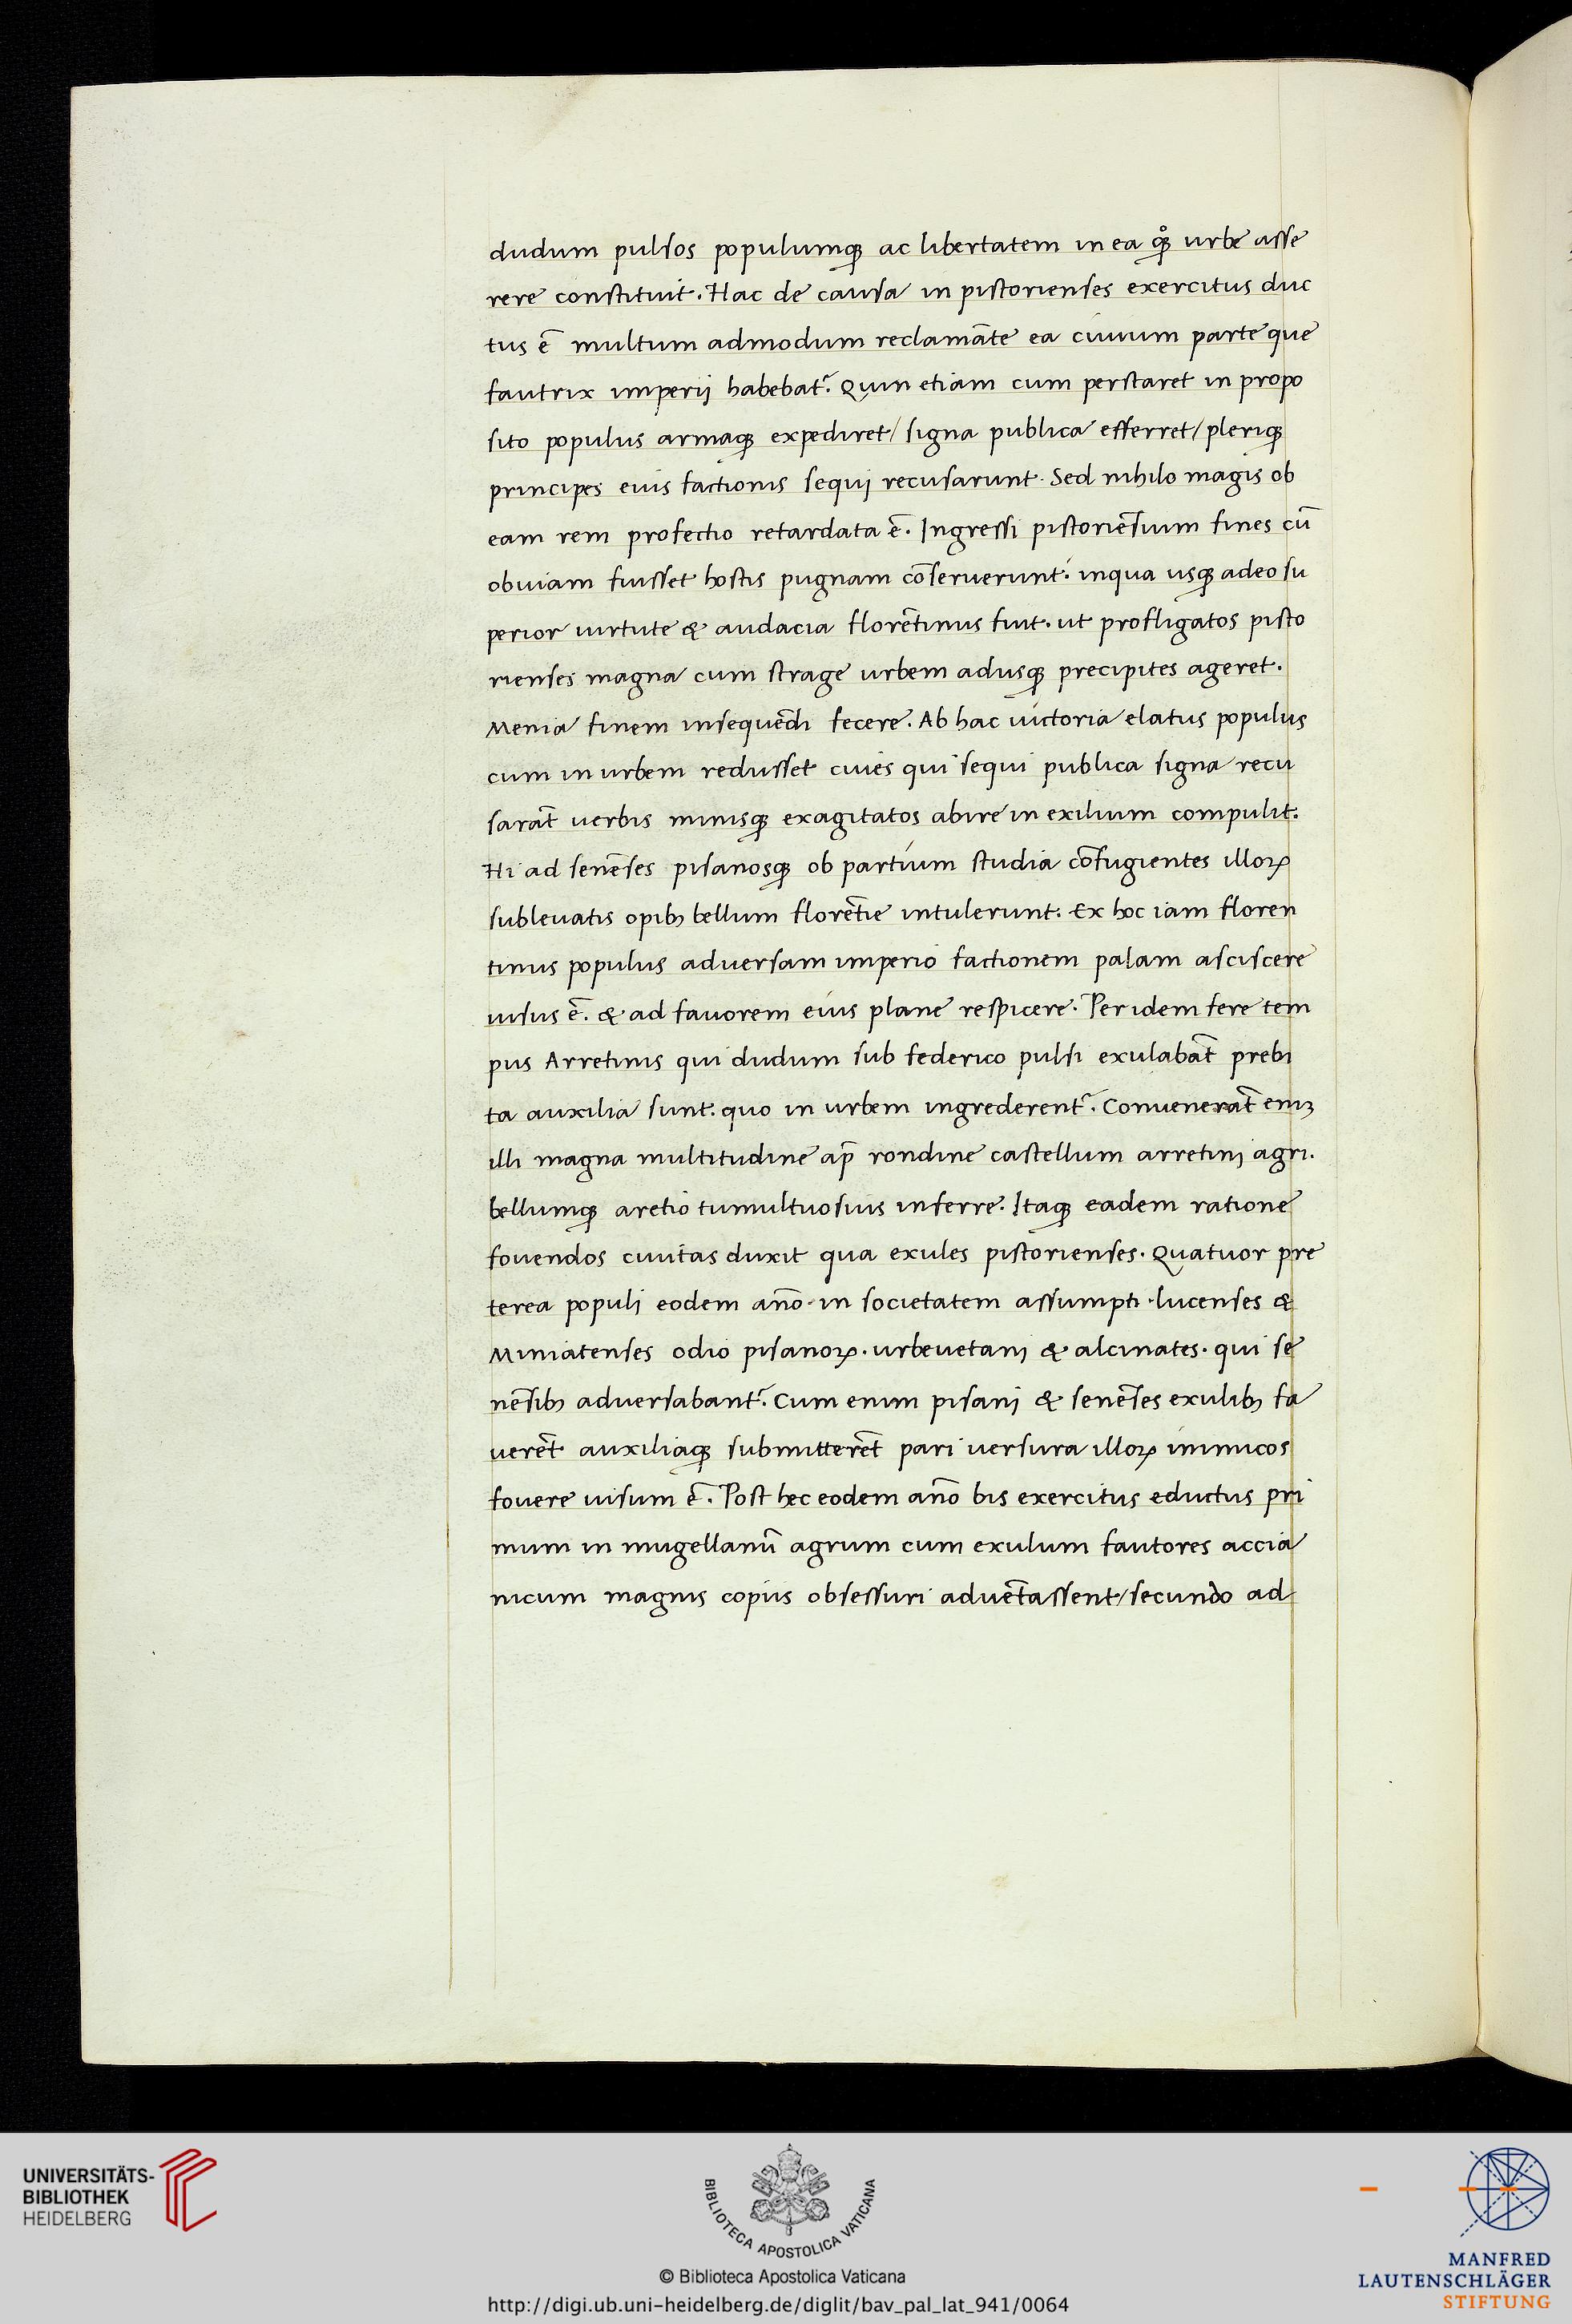 dudum pulsos populumqꝫ ac libertatem in ea qͦqꝫ urbe asse
rere constituit. Hac de causa in pistorienses exercitus duc
tus ē multum admodum reclamāte ea ciuium parte que
fautrix imperij habebat᷑. Quin etiam cum perstaret in propo
sito populus armaqꝫ expediret/ signa publica efferret/ pleriqꝫ
principes eius factionis sequi recusarunt. Sed nihilo magis ob
eam rem profectio retardata ē. Ingressi pistoriēsium fines cū
obuiam fuisset hostis pugnam cōseruerunt. inqua usqꝫ adeo su
perior uirtute & audacia florētinus fuit. ut profligatos pisto
rienses magna cum strage urbem adusqꝫ precipites ageret.
Menia finem insequēdi fecere. Ab hac uictoria elatus populus
cum in urbem redisset ciues qui sequi publica signa recu
sarāt uerbis minisqꝫ exagitatos abire in exilium compulit.
Hi ad senēses pisanosqꝫ ob partium studia cōfugientes illoꝝ
subleuatis opibꝫ bellum florētie intulerunt. Ex hoc iam floren
tinus populus aduersam imperio factionem palam asciscere
uisus ē. & ad fauorem eius plane respicere. Per idem fere tem
pus Arretinis qui dudum sub federico pulsi exulabāt prebi
ta auxilia sunt. quo in urbem ingrederent᷑. Conuenerāt eniꝫ
illi magna multitudine ap̄ rondine castellum arretini agri.
bellumqꝫ aretio tumultuosius inferre. Itaqꝫ eadem ratione
fouendos ciuitas duxit qua exules pistorienses. Quatuor pre
terea populi eodem an̄o in societatem assumpti. lucenses &
Miniatenses odio pisanoꝝ. urbeuetani & alcinates. qui se
nēsibꝫ aduersabant᷑. Cum enim pisani & senēses exulibꝫ fa
uerēt auxiliaqꝫ submitterēt pari uersura illoꝝ inimicos
fouere uisum ē. Post hec eodem an̄o bis exercitus eductus pri
mum in mugellanū agrum cum exulum fautores accia
nicum magnis copiis obsessuri aduētassent/ secundo ad
UNIVERSITÄTS-
BIBLIOTHEK
HEIDELBERG
BIBLIOTECA APOSTOLICA VATICANA
© Biblioteca Apostolica Vaticana
http://digi.ub.uni-heidelberg.de/diglit/bav_pal_lat_941/0064
MANFRED
LAUTENSCHLÄGER
STIFTUNG